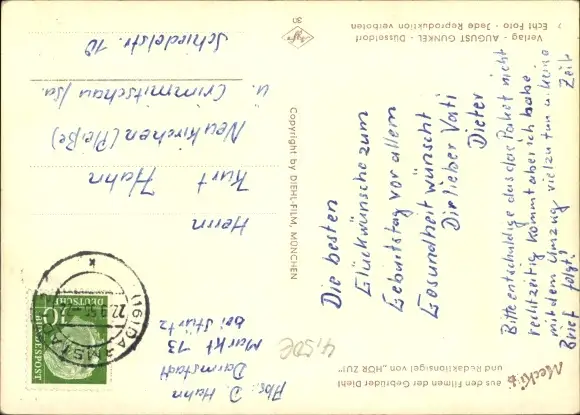 Mecki
aus den Filmen der Gebrüder Diehl
und Redaktionsigel von „HÖR ZU!"
Abs. D. Hahn
Darmstadt
Markt 73
bei Stürtz
4,50€
Die besten
Glückwünsche zum
Geburtstag vor allem
Gesundheit wünscht
Dir lieber Vati
Dieter
Bitte entschuldige das das Paket nicht
rechtzeitig kommt aber ich habe
mit dem Umzug viel zu tun u. keine
Zeit
Brief folgt!
Copyright by DIEHL-FILM, MÜNCHEN
(16) DARMSTADT
22.9.55
k
DEUTSCHE
BUNDESPOST
10
Herrn
Kurt Hahn
Neukirchen (Pleiße)
ü. Crimmitschau/Sa.
Schiedelstr. 10
Verlag - AUGUST GUNKEL - Düsseldorf
Echt Foto - Jede Reproduktion verboten
Agfa
30